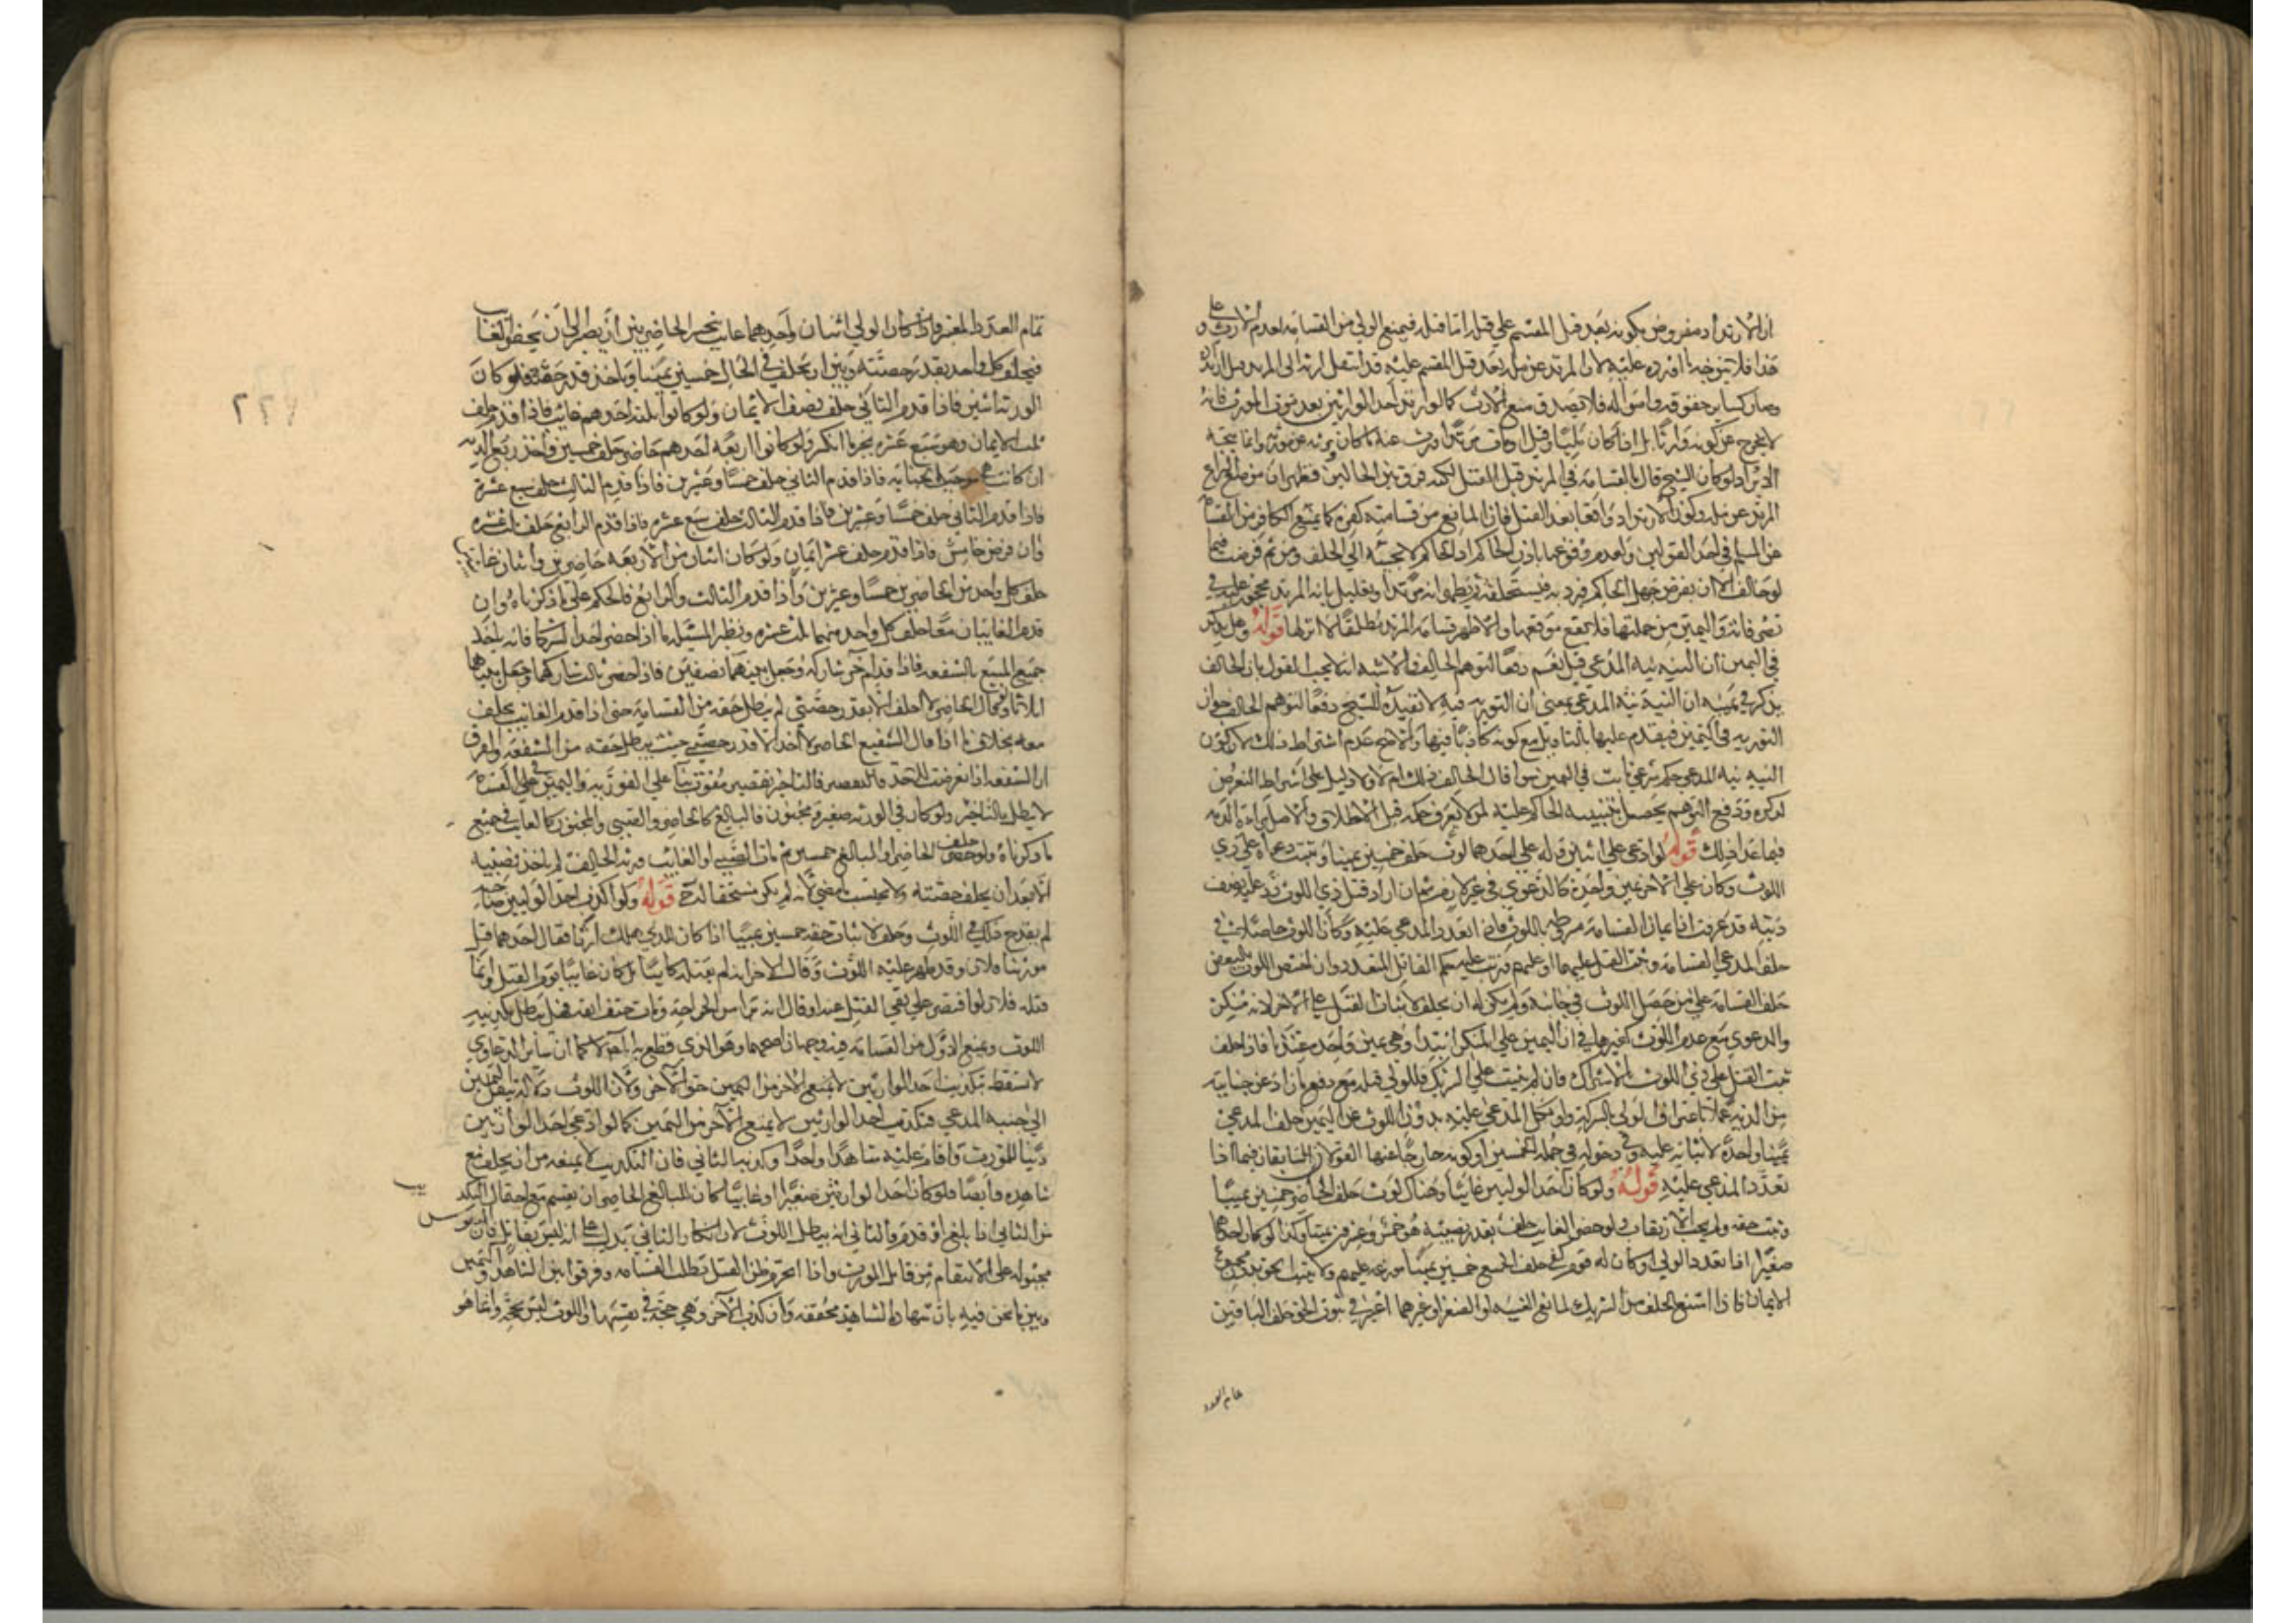 ان الارتداد مفروض بكونه بعد قتل المقسم على قتله اما قبله فيمنع الولي من القسامة لعدم الارث و على
هذا فلا يتوجه ما افرده عليه لان المرتد عن مله بعد قتل المقسم عليه قد انتقل ارثه الى المرتد قبل الردة
وصار كساير حقوقه وامواله فلا تصدق منع الارث كالوارث احد الوارثين بعد موت المورث فانه
لا يخرج عن كونه وارثا
الايراد لو كان الشيخ قال بالقسامة في المرتد قبل القتل لكنه فرق بين الحالين فظهر ان موضع النزاع
المرتد عن مله وكون الارتداد واقعا بعد القتل فان المانع من قسامته كفره كما يمنع الكافر من القسامة
على المسلم في احد القولين ولعدم وقوعها باذن الحاكم اذ الحاكم لا يجيبه الى الحلف ومن ثم فرضت فيما
لو خالف الا ان يفرض جهل الحاكم بردته فيستحلفه ثم يظهر انه مرتدا وتعليل بانه المرتد محجور عليه في
تصرفاته واليمين من جملتها فلا تقع موقعها والاظهر قسامة المرتد مطلقا لا اثر لها قوله وهل يذكر
في اليمين ان النية نية المدعي قيل نعم دفعا لتوهم الحالف والاشبه انه لا يجب القول بان الحالف
يذكر في يمينه ان النية نية المدعي بمعنى ان التورية فيه لا تفيده للشيخ دفعا لتوهم الحالف جواز
التورية في اليمين فيقدم عليها بالتاويل مع كونه كاذبا فيها والاصح عدم اشتراط ذلك لان كون
النية نية المدعي حكم شرعي ثابت في اليمين سوا قال الحالف ذلك ام لا ولا دليل على اشتراط التعرض
لذكره ودفع التوهم يحصل بتنبيه الحاكم عليه لمن لا يعرف حكمه قبل الاحلاف والاصل براءة الذمة
فيما عدا ذلك قوله لو ادعى على اثنين وله على احدهما لوث حلف خمسين يمينا وثبتت دعواه على ذي
اللوث وكان على الاخر يمين واحدة كالدعوى في غير الدم ثم ان اراد قتل ذي اللوث رد عليه نصف
ديته قد عرفت ان القسامة مشروطة باللوث فان تعدد المدعي عليه وكان اللوث حاصلا في
حلف المدعي القسامة وثبت القتل عليهما او عليهم وترتب عليه حكم القاتل المتعدد وان اختص اللوث بالبعض
حلف القسامة على من حصل اللوث في جانبه ولم يكن له ان يحلف لاثبات القتل على الاخر لانه منكر
والدعوى مع عدم اللوث كغيرها في ان اليمين على المنكر ابتداء وهي يمين واحدة عندنا فاذا حلف
ثبت القتل على ذي اللوث بالاشتراك فان لم يثبت على الشريك فللولي قتله مع دفع ما زاد عن جنايته
من الدية عملا باعتراف الولي بالشركة ولو نكل المدعى عليه بدون اللوث عن اليمين حلف المدعي
يمينا واحدة لاثباته عليه وفي دخوله في جملة الخمسين او كونه خارجا عنها القولان السابقان فيما اذا
تعدد المدعي عليه قوله ولو كان احد الوليين غايبا وهناك لوث حلف الحاضر خمسين يمينا
وثبت حقه ولم يجب الارتقاب ولو حضر الغايب حلف بقدر نصيبه وهو خمس وعشرون يمينا وكذا لو كان احدهما
صغيرا اذا تعدد الولي او كان له قوم كفى حلف الجميع خمسين يمينا موزعة عليهم ولا يثبت الحق بدون مجموع
الايمان فاذا امتنع الحلف من الشريك لمانع الغيبة او الصغر او غيرهما اعتبر في ثبوت الحق حلف الباقين
تمام العدد
تمام العدد المعتبر فاذا كان الولي اثنان واحدهما غايب تخير الحاضر بين ان يصبر الى ان يحضر الغايب
فيحلف كل واحد بقدر حصته وبين ان يحلف في الحال خمسين يمينا وياخذ قدر حقه فلو كان
الورثة اثنين فاذا قدم الثاني حلف نصف الايمان ولو كانوا ثلثة احدهم غايب فاذا قدم حلف
ثلث الايمان وهو سبع عشرة بجبر المنكسر ولو كانوا اربعة احدهم حاضر حلف خمسين واخذ ربع الدية
ان كانت هي موجب الجناية فاذا قدم الثاني حلف خمسا وعشرين فاذا قدم الثالث حلف سبع عشرة
فاذا قدم الثاني حلف خمسا وعشرين فاذا قدم الثالث حلف سبع عشرة فاذا قدم الرابع حلف ثلث عشرة
وان فرض خامس فاذا قدم حلف عشر ايمان ولو كان اثنان من الاربعة حاضرين واثنان غايبان
حلف كل واحد من الحاضرين خمسا وعشرين واذا قدم الثالث والرابع فالحكم على ما ذكرناه وان
قدم الغايبان معا حلف كل واحد منهما ثلث عشرة ونظير المسئلة ما اذا حضر احد الشركا فانه ياخذ
جميع المبيع بالشفعة فاذا قدم آخر شاركه وجعل بينهما نصفين فاذا حضر ثالث شاركهما وجعل بينهم
اثلاثا ولو قال الحاضر لا احلف الا بقدر حصتي لم يبطل حقه من القسامة حتى اذا قدم الغايب يحلف
معه بخلاف ما اذا قال الشفيع الحاضر لا اخذ الا قدر حصتي حيث يبطل حقه من الشفعة والفرق
ان الشفعة اذا تعرضت للاخذ فالتاخير تقصير مفوت بنا على الفور به واليمين في القسامة
لا تبطل بالتاخير ولو كان في الورثة صغير او مجنون فالبالغ كالحاضر والصبي والمجنون كالغايب في جميع
ما ذكرناه ولو حلف الحاضر او البالغ خمسين ثم مات الصبي او الغائب وورثه الحالف لم ياخذ نصيبه
الا بعد ان يحلف حصته ولا يحتسب بما مضى لانه لم يكن مستحقا له ح قوله ولو اكذب احد الوليين صاحبه
لم يقدح ذلك في اللوث وحلف لاثبات حقه خمسين يمينا اذا كان للذي هلك ارثا فقال احدهما قتل
مورثنا فلان وقد ظهر عليه اللوث وقال الاخر انه لم يقتله بل كان غايبا يوم القتل وانما
قتله فلان او اقتصر على نفي القتل عنه او قال انه برا من الجراحة ومات حتف انفه فهل يبطل تكذيبه
اللوث ويمنع الاول من القسامة فيه وجهان اصحهما وهو الذي قطع به لا كما ان ساير الدعاوي
لا تسقط بتكذيب احد الوارثين لا يمنع الاخر من اليمين حق الاخر ولان اللوث دلالة تنقل اليمين
الى جنبة المدعي فتكذيب احد الوارثين لا يمنع الاخر من اليمين كما لو ادعى احد الوارثين
دينا للمورث واقام عليه شاهدا واحدا وكذبه الثاني فان التكذيب لا يمنعه من ان يحلف مع
شاهده وايضا فلو كان احد الوارثين صغيرا او غايبا كان للبالغ الحاضر ان يقسم مع احتمال التكذيب
من الثاني اذا بلغ او قدم والثاني انه يبطل اللوث لان انكار الثاني يدل على انه ليس بقاتل فان النفوس
مجبولة على الانتقام من قاتل المورث واذا انخرم ظن القتل تبطل القسامة وفرقوا بين الشاهد واليمين
وبين ما نحن فيه بان شهادة الشاهد محققة وان كذب الاخر وهي حجة في نفسها واللوث ليس بحجة وانما هو
٢٢٦